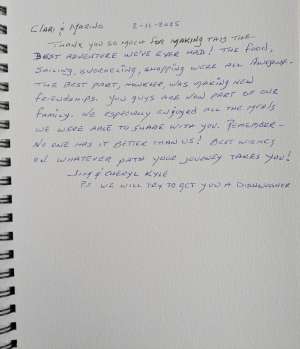 Clari & Marino 2-11-2025
Thank you so much for making this the
best adventure we've ever had! The food,
sailing, snorkeling, shopping were all awesome.
The best part, however, was making new
friendships. You guys are now part of our
family. We especially enjoyed all the meals
we were able to share with you. Remember -
No one has it better than us! Best wishes
on whatever path your journey takes you!
Jim & Cheryl Kyle
PS We will try to get you a dishwasher